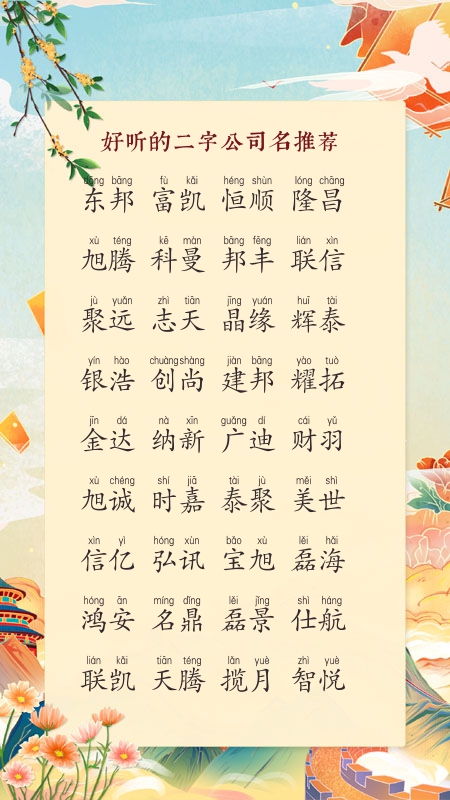 好听的二字公司名推荐
dōng bāng fù kǎi héng shùn lóng chāng
东邦 富凯 恒顺 隆昌
xù téng kē màn bāng fēng lián xìn
旭腾 科曼 邦丰 联信
jù yuǎn zhì tiān jīng yuán huī tài
聚远 志天 晶缘 辉泰
yín hào chuàng shàng jiàn bāng yào tuò
银浩 创尚 建邦 耀拓
jīn dá nà xīn guǎng dí cái yǔ
金达 纳新 广迪 财羽
xù chéng shí jiā tài jù měi shì
旭诚 时嘉 泰聚 美世
xìn yì hóng xùn bǎo xù lěi hǎi
信亿 弘讯 宝旭 磊海
hóng ān míng dǐng lěi jǐng shì háng
鸿安 名鼎 磊景 仕航
lián kǎi tiān téng lǎn yuè zhì yuè
联凯 天腾 揽月 智悦